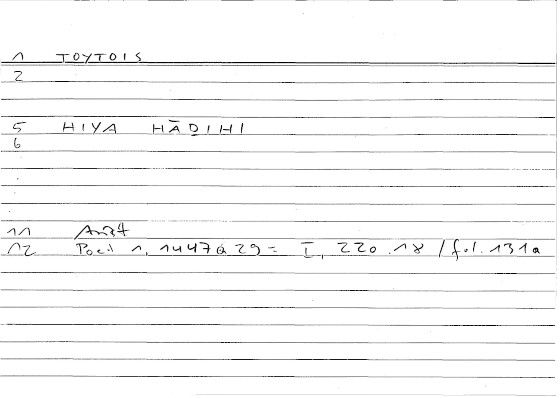 1 TOYTOIS
2
5 HIYA HĀḎIHI
6
11
12 Poet 1, 1447a29 = I, 220.18 / fol. 131a